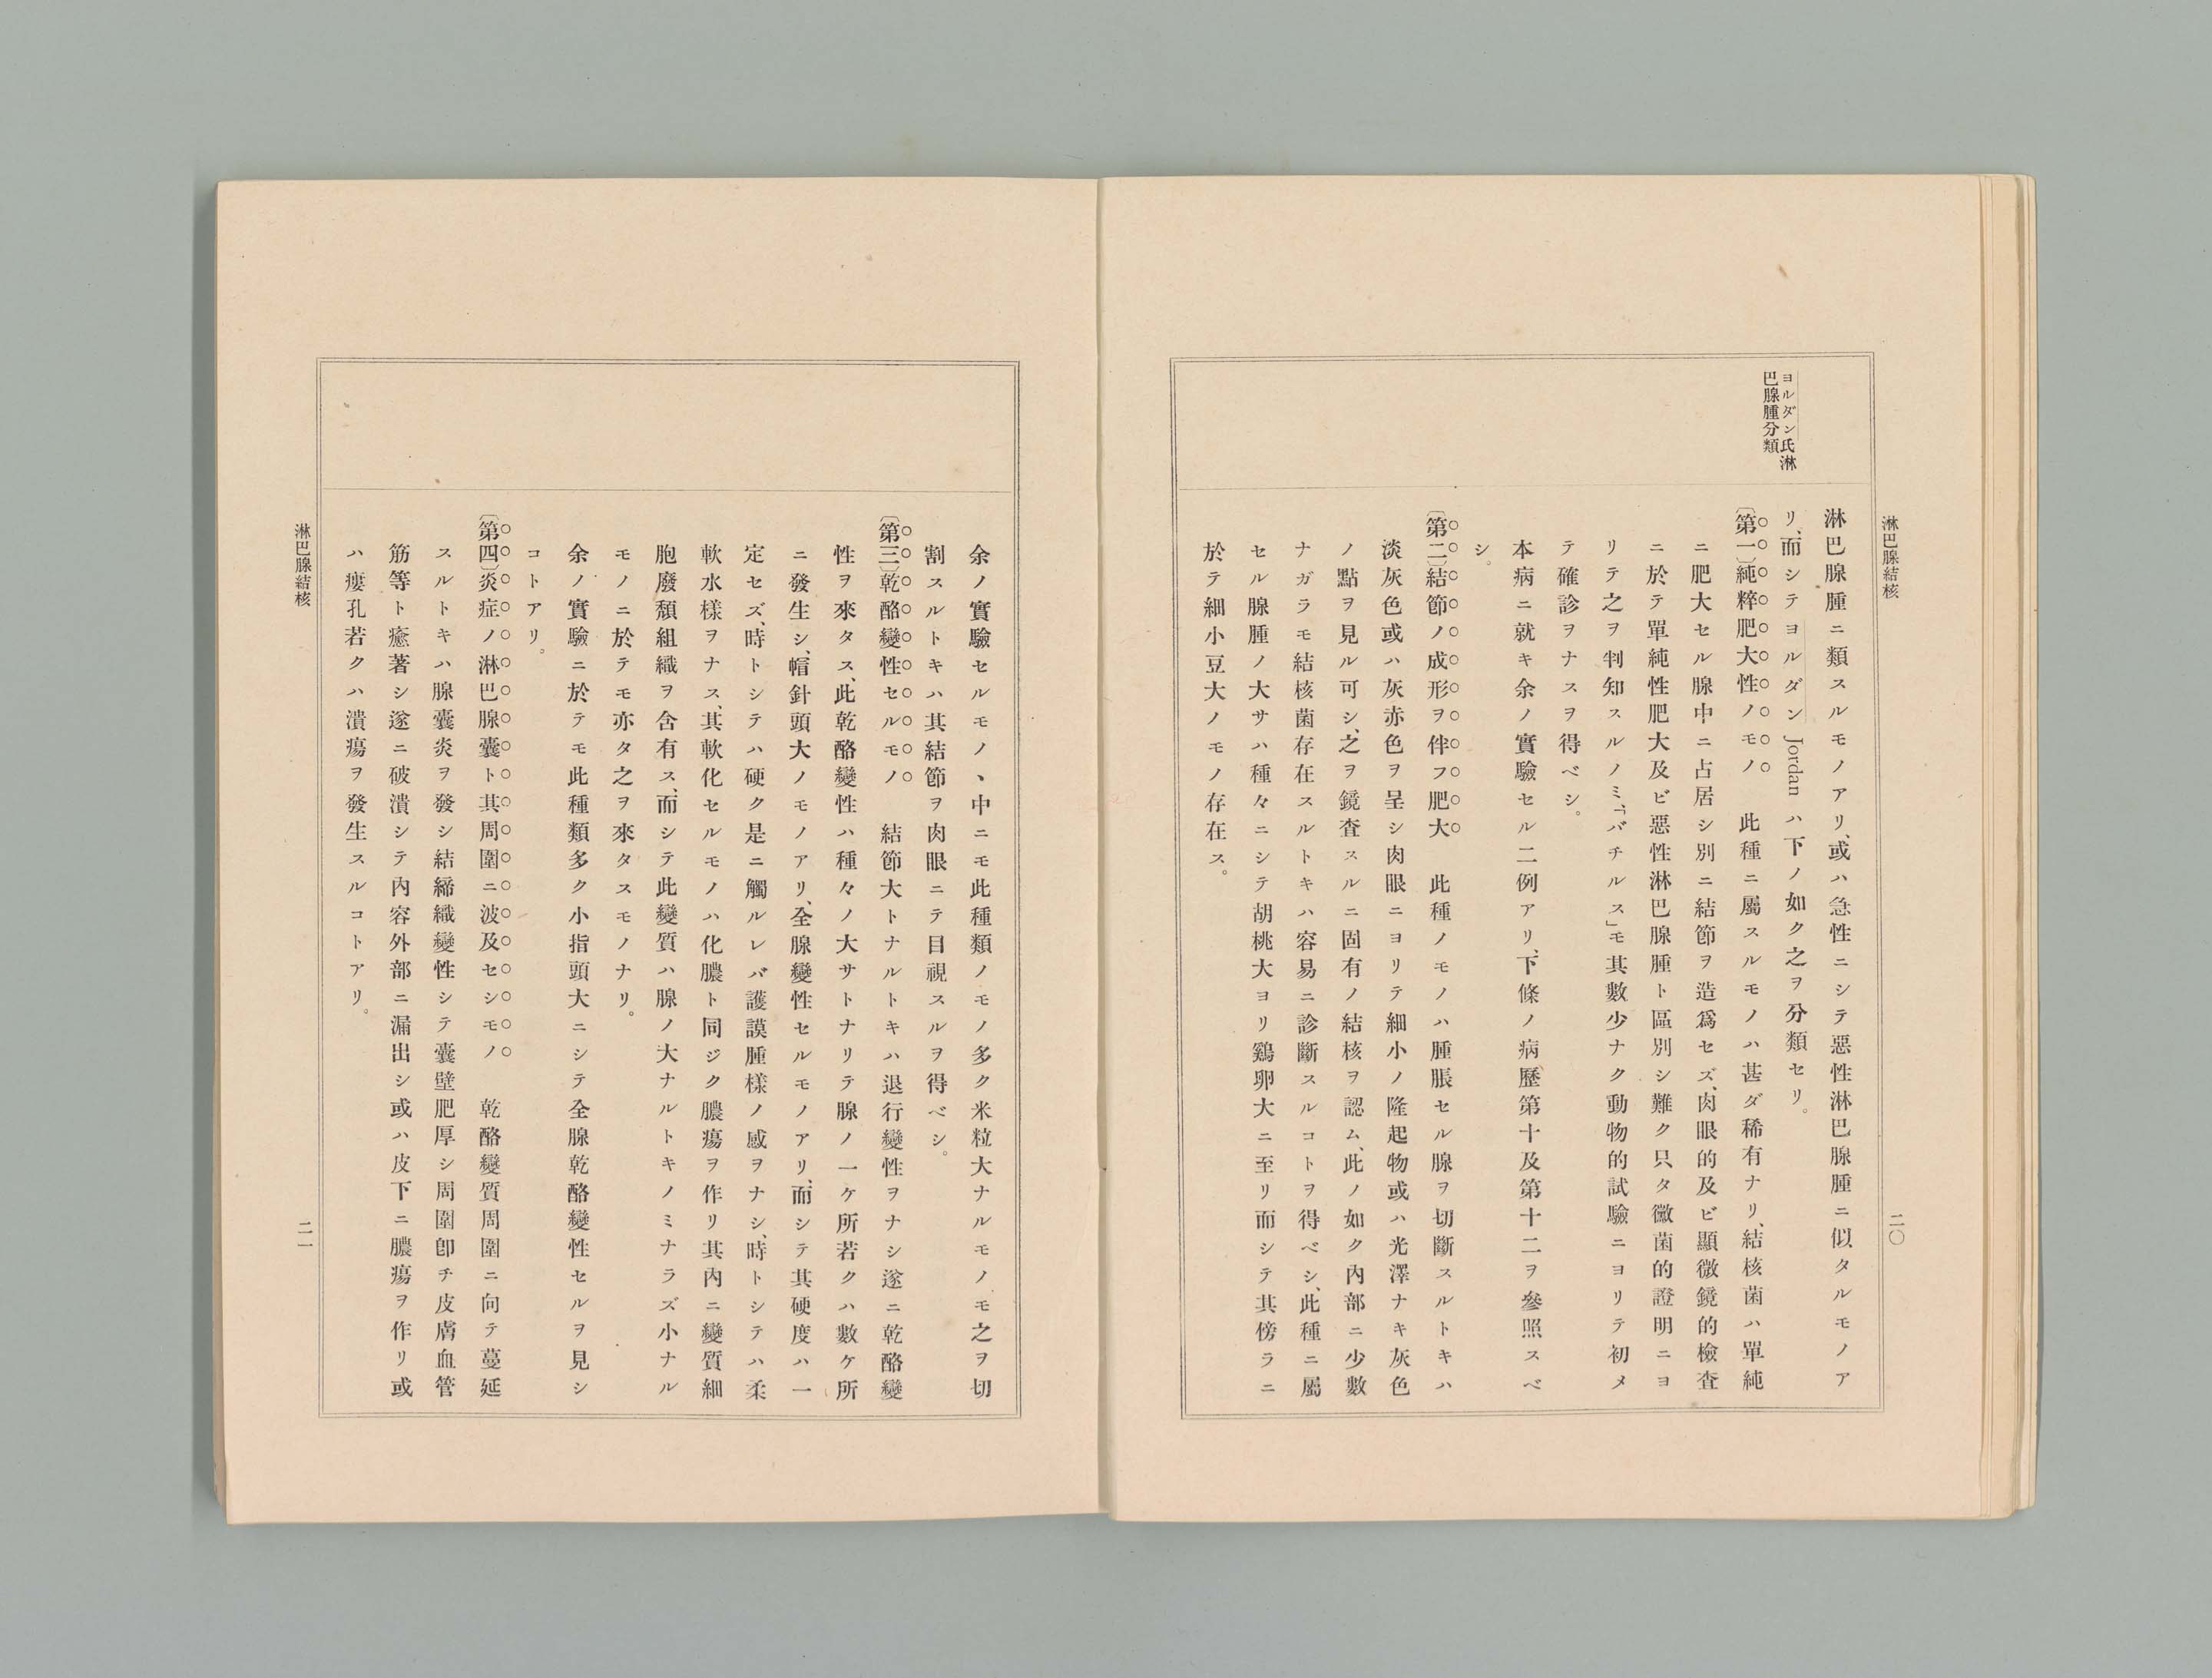 淋巴腺結核
二〇
ヨルダン氏淋
巴腺腫分類
淋巴腺腫ニ類スルモノアリ、或ハ急性ニシテ惡性淋巴腺腫ニ似タルモノア
リ、而シテヨルダン Jordan ハ下ノ如ク之ヲ分類セリ。
〔第一〕純粹肥大性ノモノ 此種ニ屬スルモノハ甚ダ稀有ナリ、結核菌ハ單純
ニ肥大セル腺中ニ占居シ別ニ結節ヲ造爲セズ、肉眼的及ビ顯微鏡的檢査
ニ於テ單純性肥大及ビ惡性淋巴腺腫ト區別シ難ク只タ黴菌的證明ニヨ
リテ之ヲ判知スルノミ、「バチルス」モ其數少ナク動物的試驗ニヨリテ初メ
テ確診ヲナスヲ得ベシ。
本病ニ就キ余ノ實驗セル二例アリ、下條ノ病歷第十及第十二ヲ參照スベ
シ。
〔第二〕結節ノ成形ヲ伴フ肥大 此種ノモノハ腫脹セル腺ヲ切斷スルトキハ
淡灰色或ハ灰赤色ヲ呈シ肉眼ニヨリテ細小ノ隆起物或ハ光澤ナキ灰色
ノ點ヲ見ル可シ、之ヲ鏡査スルニ固有ノ結核ヲ認ム、此ノ如ク內部ニ少數
ナガラモ結核菌存在スルトキハ容易ニ診斷スルコトヲ得ベシ、此種ニ屬
セル腺腫ノ大サハ種々ニシテ胡桃大ヨリ鷄卵大ニ至リ而シテ其傍ラニ
於テ細小豆大ノモノ存在ス。
余ノ實驗セルモノヽ中ニモ此種類ノモノ多ク米粒大ナルモノモ之ヲ切
割スルトキハ其結節ヲ肉眼ニテ目視スルヲ得ベシ。
〔第三〕乾酪變性セルモノ 結節大トナルトキハ退行變性ヲナシ遂ニ乾酪變
性ヲ來タス、此乾酪變性ハ種々ノ大サトナリテ腺ノ一ケ所若クハ數ケ所
ニ發生シ、帽針頭大ノモノアリ、全腺變性セルモノアリ、而シテ其硬度ハ一
定セズ、時トシテハ硬ク是ニ觸ルレバ護謨腫樣ノ感ヲナシ、時トシテハ柔
軟水樣ヲナス、其軟化セルモノハ化膿ト同ジク膿瘍ヲ作リ其內ニ變質細
胞廢頽組織ヲ含有ス、而シテ此變質ハ腺ノ大ナルトキノミナラズ小ナル
モノニ於テモ亦タ之ヲ來タスモノナリ。
余ノ實驗ニ於テモ此種類多ク小指頭大ニシテ全腺乾酪變性セルヲ見シ
コトアリ。
〔第四〕炎症ノ淋巴腺囊ト其周圍ニ波及セシモノ 乾酪變質周圍ニ向テ蔓延
スルトキハ腺囊炎ヲ發シ結締織變性シテ囊壁肥厚シ周圍卽チ皮膚血管
筋等ト癒著シ遂ニ破潰シテ內容外部ニ漏出シ或ハ皮下ニ膿瘍ヲ作リ或
ハ瘻孔若クハ潰瘍ヲ發生スルコトアリ。
淋巴腺結核
二一